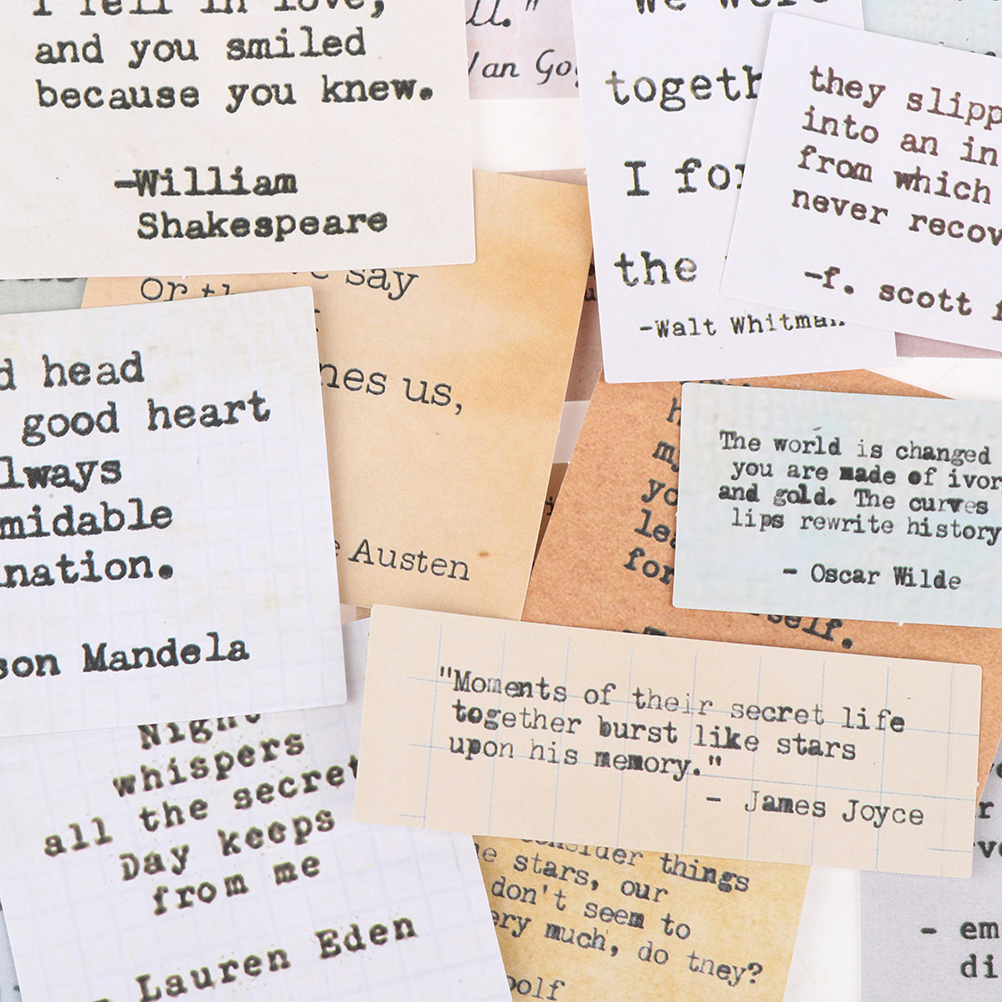 I fell in love,
and you smiled
because you knew.
—William
Shakespeare
ll."
Van Go
we were
togeth
I fo
the
-Walt Whitman
they slipp
into an in
from which
never recov
-f. scott f
say
or
nes us,
Austen
d head
good heart
lways
midable
nation.
son Mandela
The world is changed
you are made of ivor
and gold. The curves
lips rewrite history
- Oscar Wilde
my
yo
le
for
self.
"Moments of their secret life
together burst like stars
upon his memory."
- James Joyce
Night
whispers
all the secret
Day keeps
from me
- Lauren Eden
consider things
e stars, our
don't seem to
ery much, do they?
oolf
- em
di